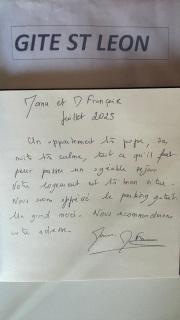 GITE ST LEON
Manu et D Françoise
Juillet 2025
Un appartement très propre, des
nuits très calmes, tout ce qu'il faut
pour passer un agréable séjour
Votre logement est très bien situé.
Nous avons apprécié le parking gratuit.
Un grand merci. Nous recommanderons
votre adresse.